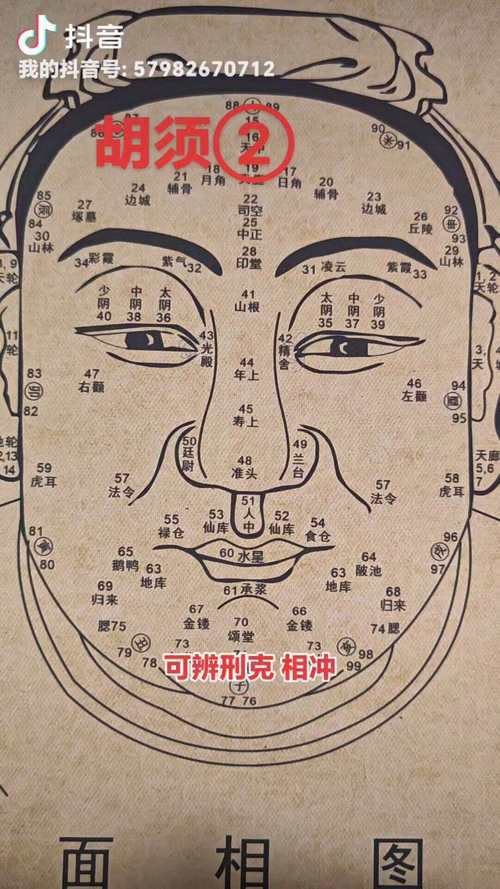 抖音
我的抖音号: 57982670712
胡须②
88 89
15
90 91
16
18 月角
17 日角
21 辅骨
20 辅骨
24 边城
23 边城
22 司空
25 中正
27 塚墓
26 丘陵
85
84
30 山林
92
93
29 山林
28 印堂
34 彩霞
紫气 32
31 凌云
紫霞 33
少阴 40
中阴 38
太阴 36
太阴 35
中阴 37
少阴 39
41 山根
43 光殿
42 精舍
44 年上
47 右颧
46 左颧
83
82
94
95
45 寿上
50 廷尉
49 兰台
48 准头
59 虎耳
57 法令
57 法令
58 虎耳
51 人中
53 仙库
52 仙库
55 禄仓
54 食仓
81
80
96
97
60 水星
65 鹅鸭
64 陂池
63 地库
63 地库
61 承浆
69 归来
68 归来
67 金镂
66 金镂
70 颂堂
腮75
74 腮
79 丑 78
73
73
98
99
可辨刑克 相冲
子
77 76
面相图